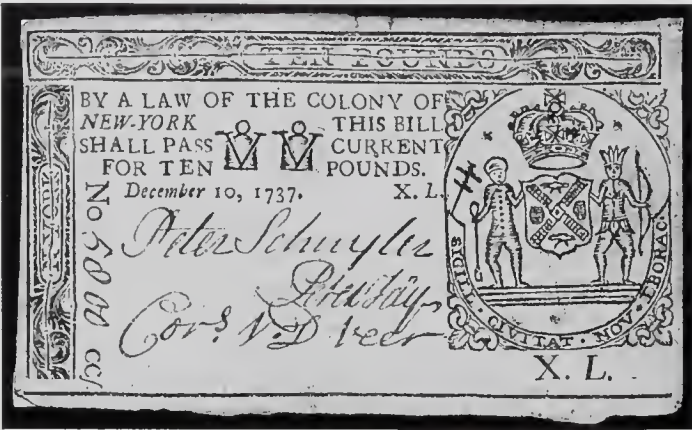 TEN POUNDS
BY A LAW OF THE COLONY OF
NEW-YORK THIS BILL
SHALL PASS CURRENT
FOR TEN POUNDS.
December 10, 1737. X. L.
No 5800
Peter Schuyler
Cors. V. D Veer
SIGILL. CIVITAT. NOV. EBORAC.
X. L.